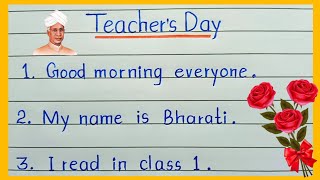 Teacher's Day
1. Good morning everyone.
2. My name is Bharati.
3. I read in class 1.